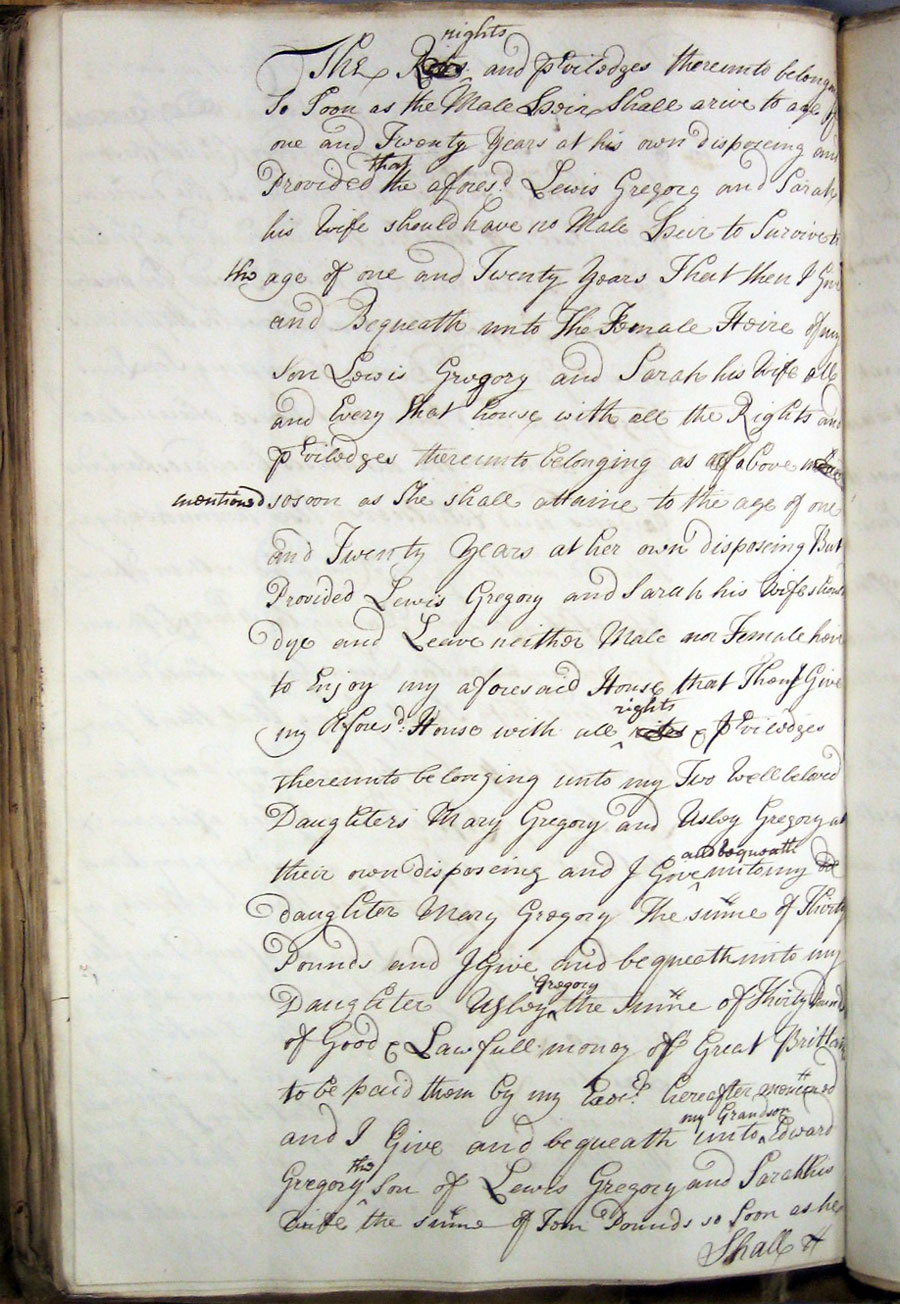 rights
The and Priviledges thereunto belonging
So Soon as the Male Heir Shall arive to age of
one and Twenty Years at his own disposing and
that
Provided the afores.d Lewis Gregory and Sarah
his Wife should have no Male Heir to Survive to
the age of one and Twenty Years That then I Give
and Bequeath unto The Female Heire of my
Son Lewis Gregory and Sarah his Wife all
and Every that house with all the Rights and
Priviledges thereunto belonging as above
mentioned so soon as She shall attaine to the age of one
and Twenty Years at her own disposing But
Provided Lewis Gregory and Sarah his Wife should
dye and Leave neither Male nor Female heire
to Enjoy my aforesaid House that Then I Give
rights
my Afores.d House with all & Priviledges
thereunto belonging unto my Two Well beloved
Daughters Mary Gregory and Usley Gregory at
and bequeath
their own disposing and I Give unto my
daughter Mary Gregory The sume of Thirty
Pounds and I Give and bequeath unto my
Gregory
Daughter Usley the sume of Thirty Pounds
of Good & Lawfull money of Great Brittain
to be paid them by my Exec.r hereafter mentioned
my Grandson
and I Give and bequeath unto Edward
the
Gregory Son of Lewis Gregory and Sarah his
Wife the sume of Pounds so Soon as he
Shall